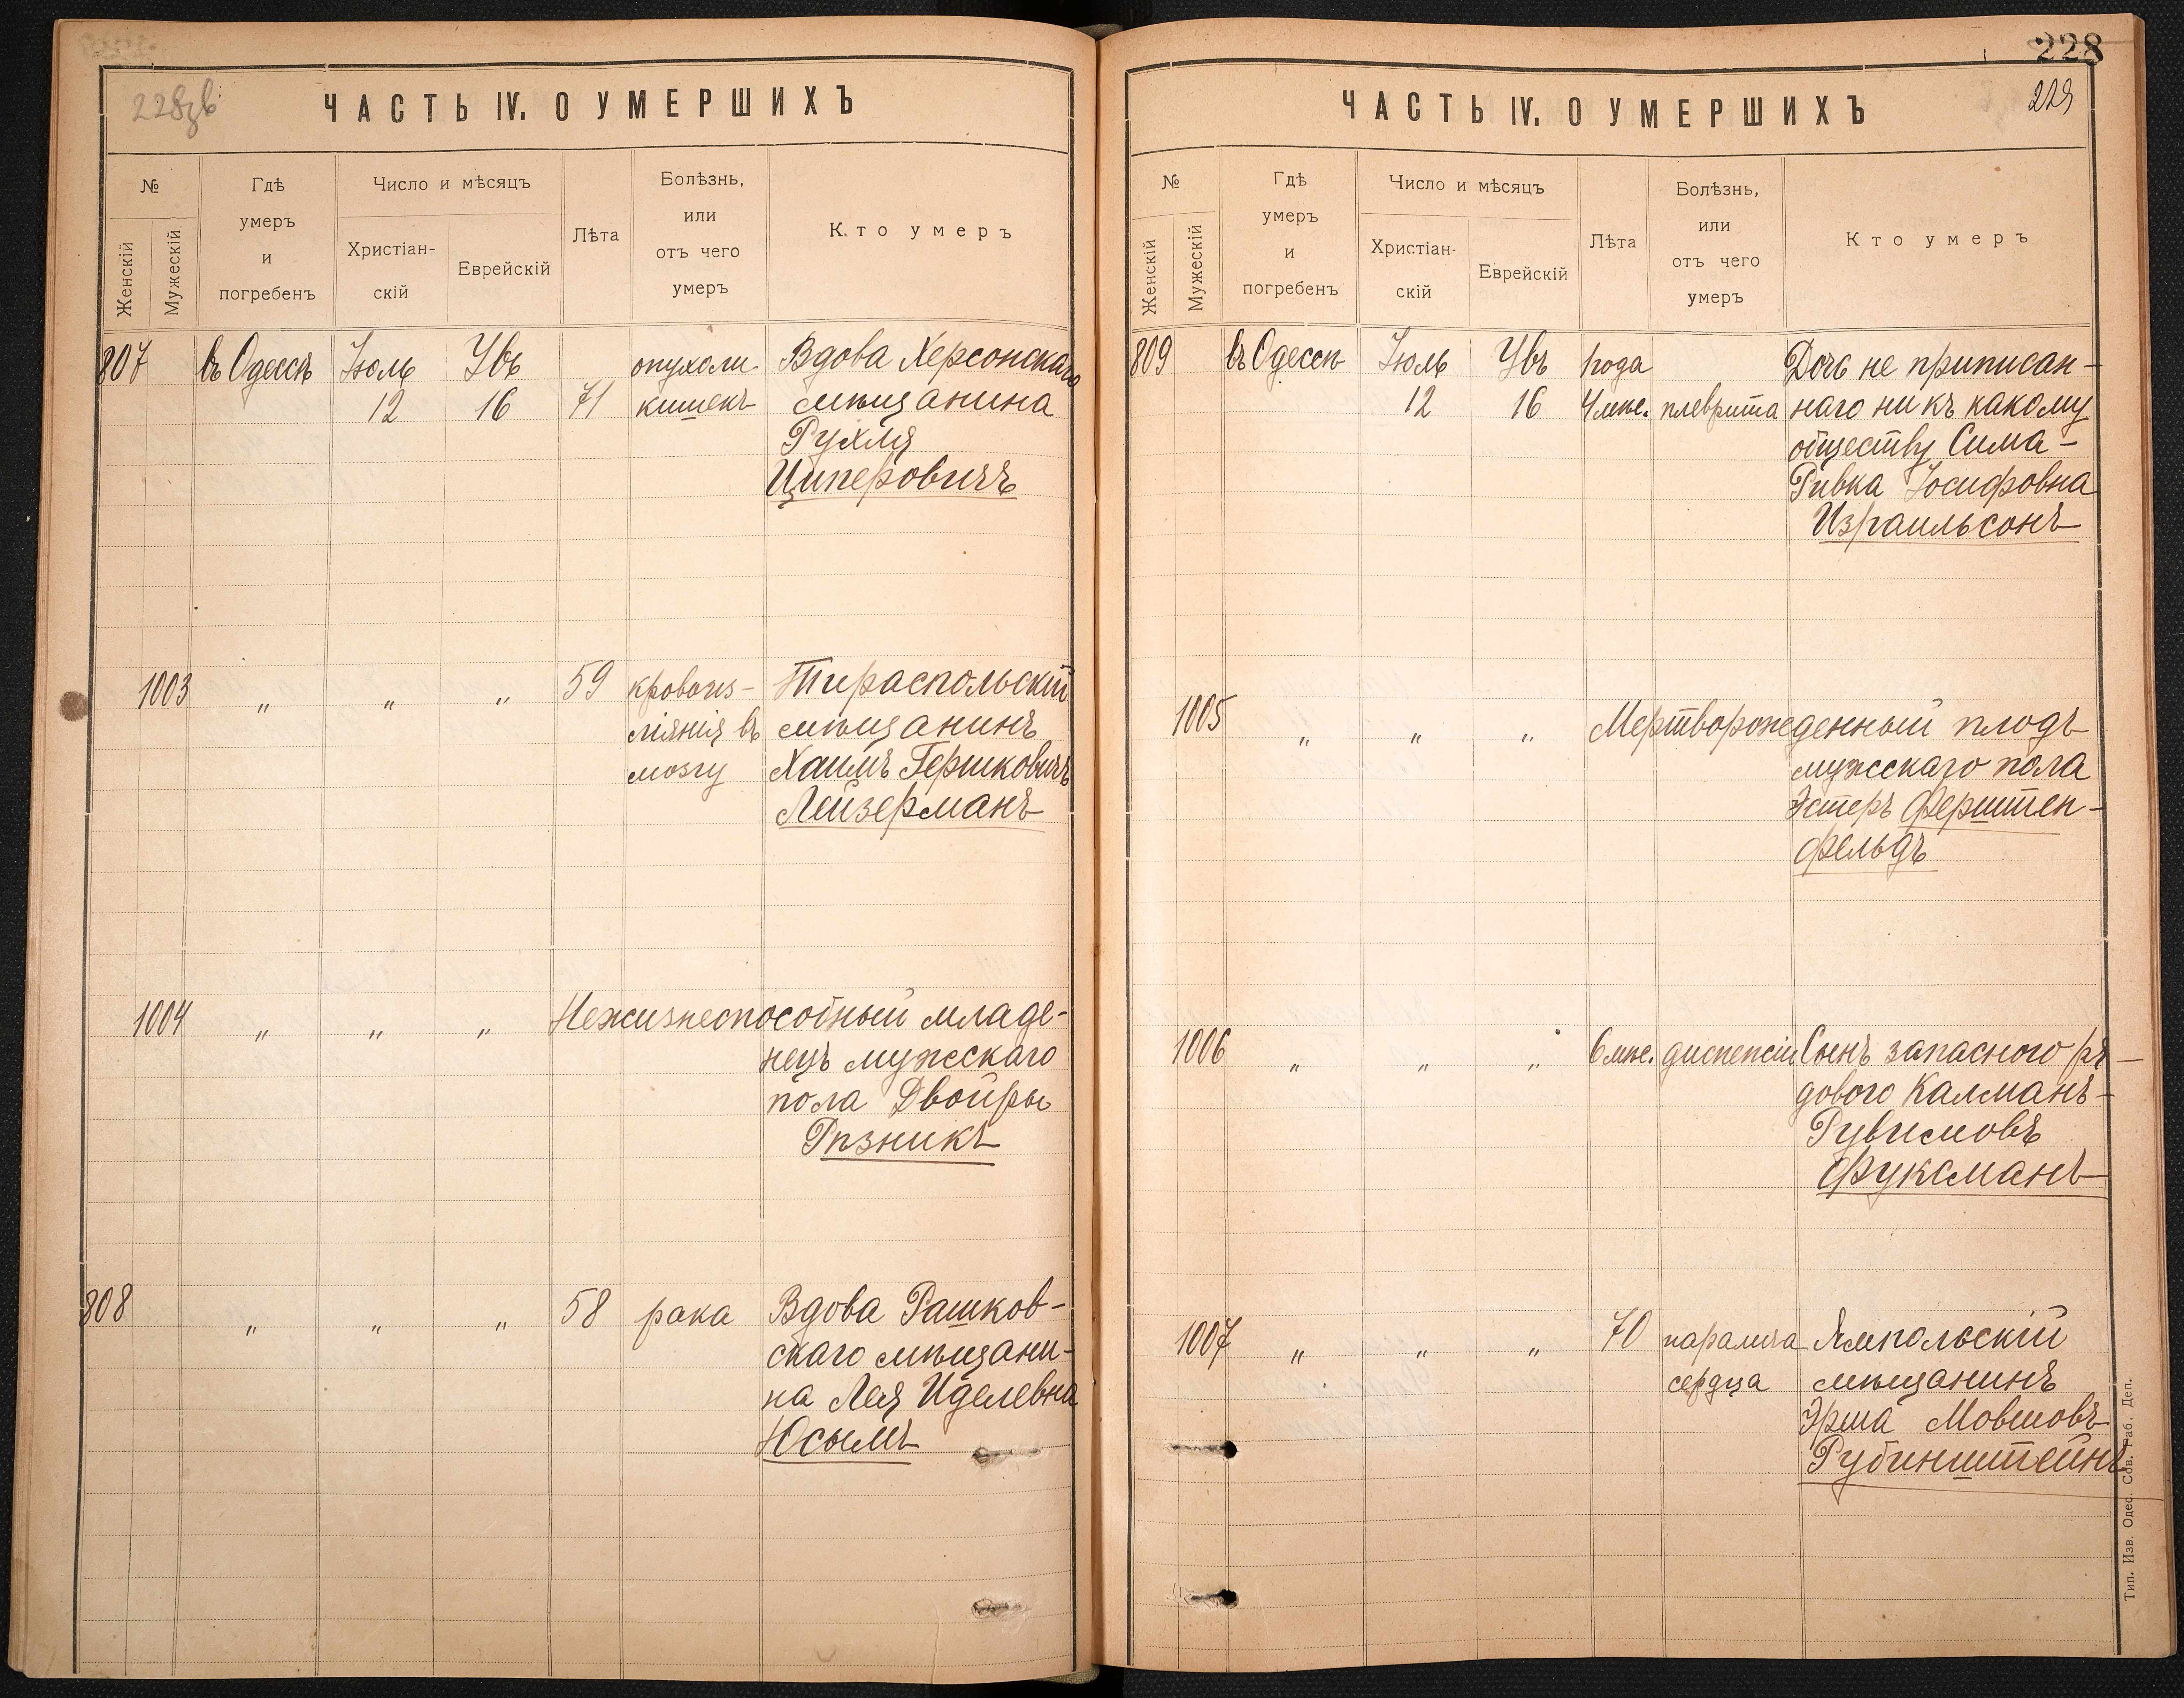 228зв
ЧАСТЬ IV. О УМЕРШИХЪ
№
Женскій
Мужескій
Гдѣ
умеръ
и
погребенъ
Число и мѣсяцъ
Христіан-
скій
Еврейскій
Лѣта
Болѣзнь,
или
отъ чего
умеръ
Кто умеръ
807 въ Одессѣ Іюль Увъ опухоли Вдова Херсонскаго
12 16 71 кишекъ мѣщанина
Рухля
Циперовичъ
1003 " " " 59 кровоиз- Тираспольскій
ліянія въ мѣщанинъ
мозгу Хаимъ Гершковичъ
Лейзерманъ
1004 " " " Нежизнеспособный младе-
нецъ мужскаго
пола Двойры
Рѣзникъ
808 " " " 58 рака Вдова Рашков-
скаго мѣщани-
на Лея Иделевна
Юсымъ
228
229
ЧАСТЬ IV. О УМЕРШИХЪ
№
Женскій
Мужескій
Гдѣ
умеръ
и
погребенъ
Число и мѣсяцъ
Христіан-
скій
Еврейскій
Лѣта
Болѣзнь,
или
отъ чего
умеръ
Кто умеръ
809 въ Одессѣ Іюль Увъ 1 года Дочь не приписан-
12 16 4 мѣс. плеврита наго ни къ какому
обществу Сима-
Ривка Іосифовна
Израильсонъ
1005 " " " Мертворожденный плодъ
мужескаго пола
Эстеръ Ферштен-
фельдъ
1006 " " " 6 мѣс. диспепсіи Сынъ запасного ря-
дового Калманъ-
Рувимовъ
Фуксманъ
1007 " " " 70 паралича Ямпольскій
сердца мѣщанинъ
Эрша Мовшовъ
Рубинштейнъ
Тип. Изв. Одес. Сов. Раб. Деп.